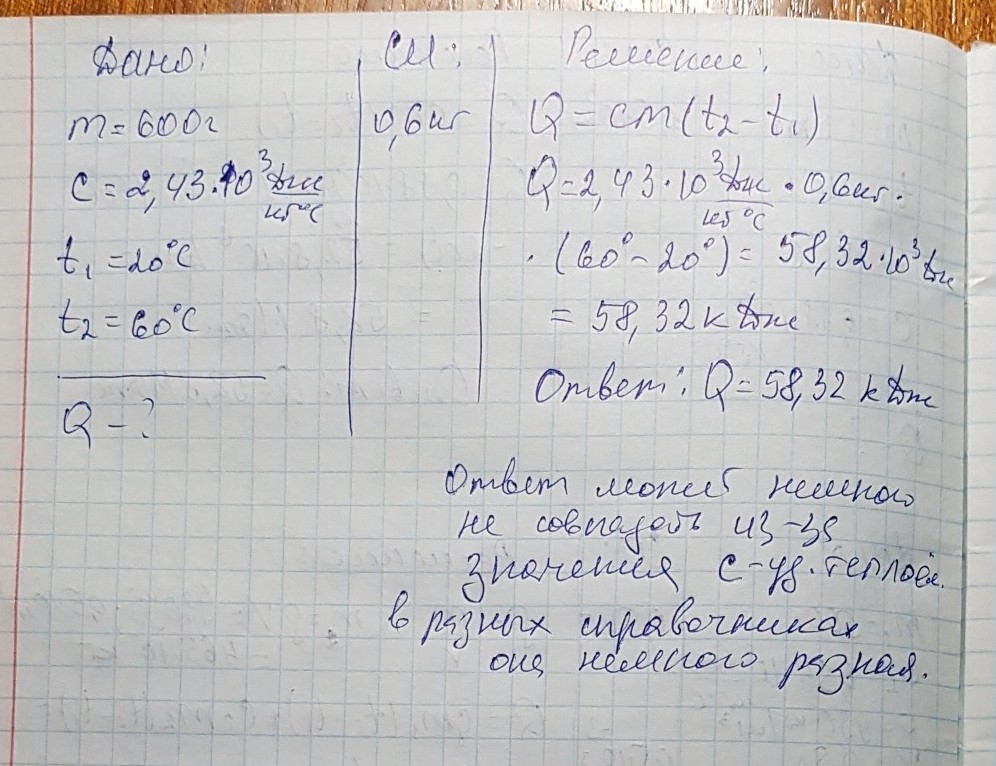 Дано:
m = 600г
c = 2,43·10³ Дж/кг°C
t₁ = 20°C
t₂ = 60°C
Q - ?
СИ:
0,6кг
Решение:
Q = cm(t₂ - t₁)
Q = 2,43·10³ Дж/кг°C · 0,6кг ·
· (60° - 20°) = 58,32·10³ Дж
= 58,32 кДж
Ответ: Q = 58,32 кДж
Ответ может немного
не совпадать из-за
значения c-уд. теплоём.
в разных справочниках
она немного разная.